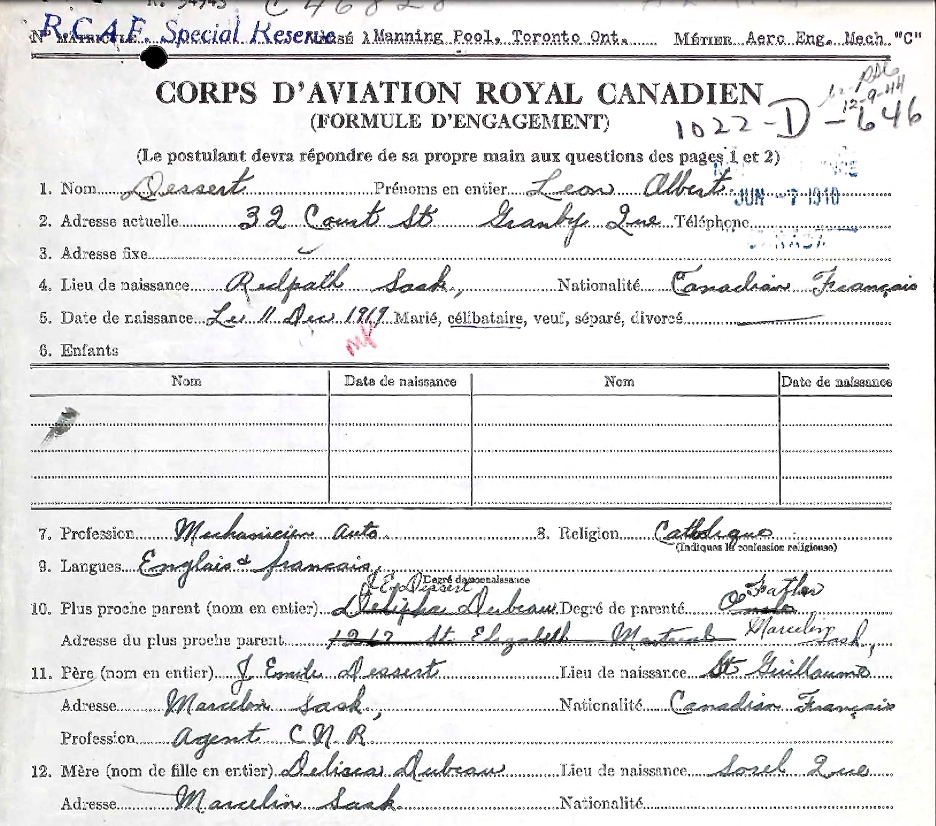 R.C.A.F. Special Reserve
No MATRICULE À Manning Pool, Toronto Ont. MÉTIER Aero Eng. Mech "C"
12-9-44
CORPS D'AVIATION ROYAL CANADIEN
(FORMULE D'ENGAGEMENT)
1022-D-646
(Le postulant devra répondre de sa propre main aux questions des pages 1 et 2)
1. Nom Dessert Prénoms en entier Leon Albert
JUN -7 1940
2. Adresse actuelle 32 Court St Granby Que Téléphone
CANADA
3. Adresse fixe
4. Lieu de naissance Redpath Sask, Nationalité Canadian Français
5. Date de naissance Le 11 Dec 1919 Marié, célibataire, veuf, séparé, divorcé
6. Enfants
Nom Date de naissance Nom Date de naissance
7. Profession Mechanicien Auto 8. Religion Catholique
(Indiquez la confession religieuse)
9. Langues Englais & francais,
Degré de connaissance
J E Dessert Father
10. Plus proche parent (nom en entier) Dubeau Degré de parenté Oncle
Adresse du plus proche parent 1217 St. Elizabeth Montreal Marcelin Sask,
11. Père (nom en entier) J Emile Dessert Lieu de naissance St Guillaume
Adresse Marcelin Sask, Nationalité Canadian Français
Profession Agent C.N.R
12. Mère (nom de fille en entier) Delisca Dubeau Lieu de naissance Sorel Que
Adresse Marcelin Sask. Nationalité